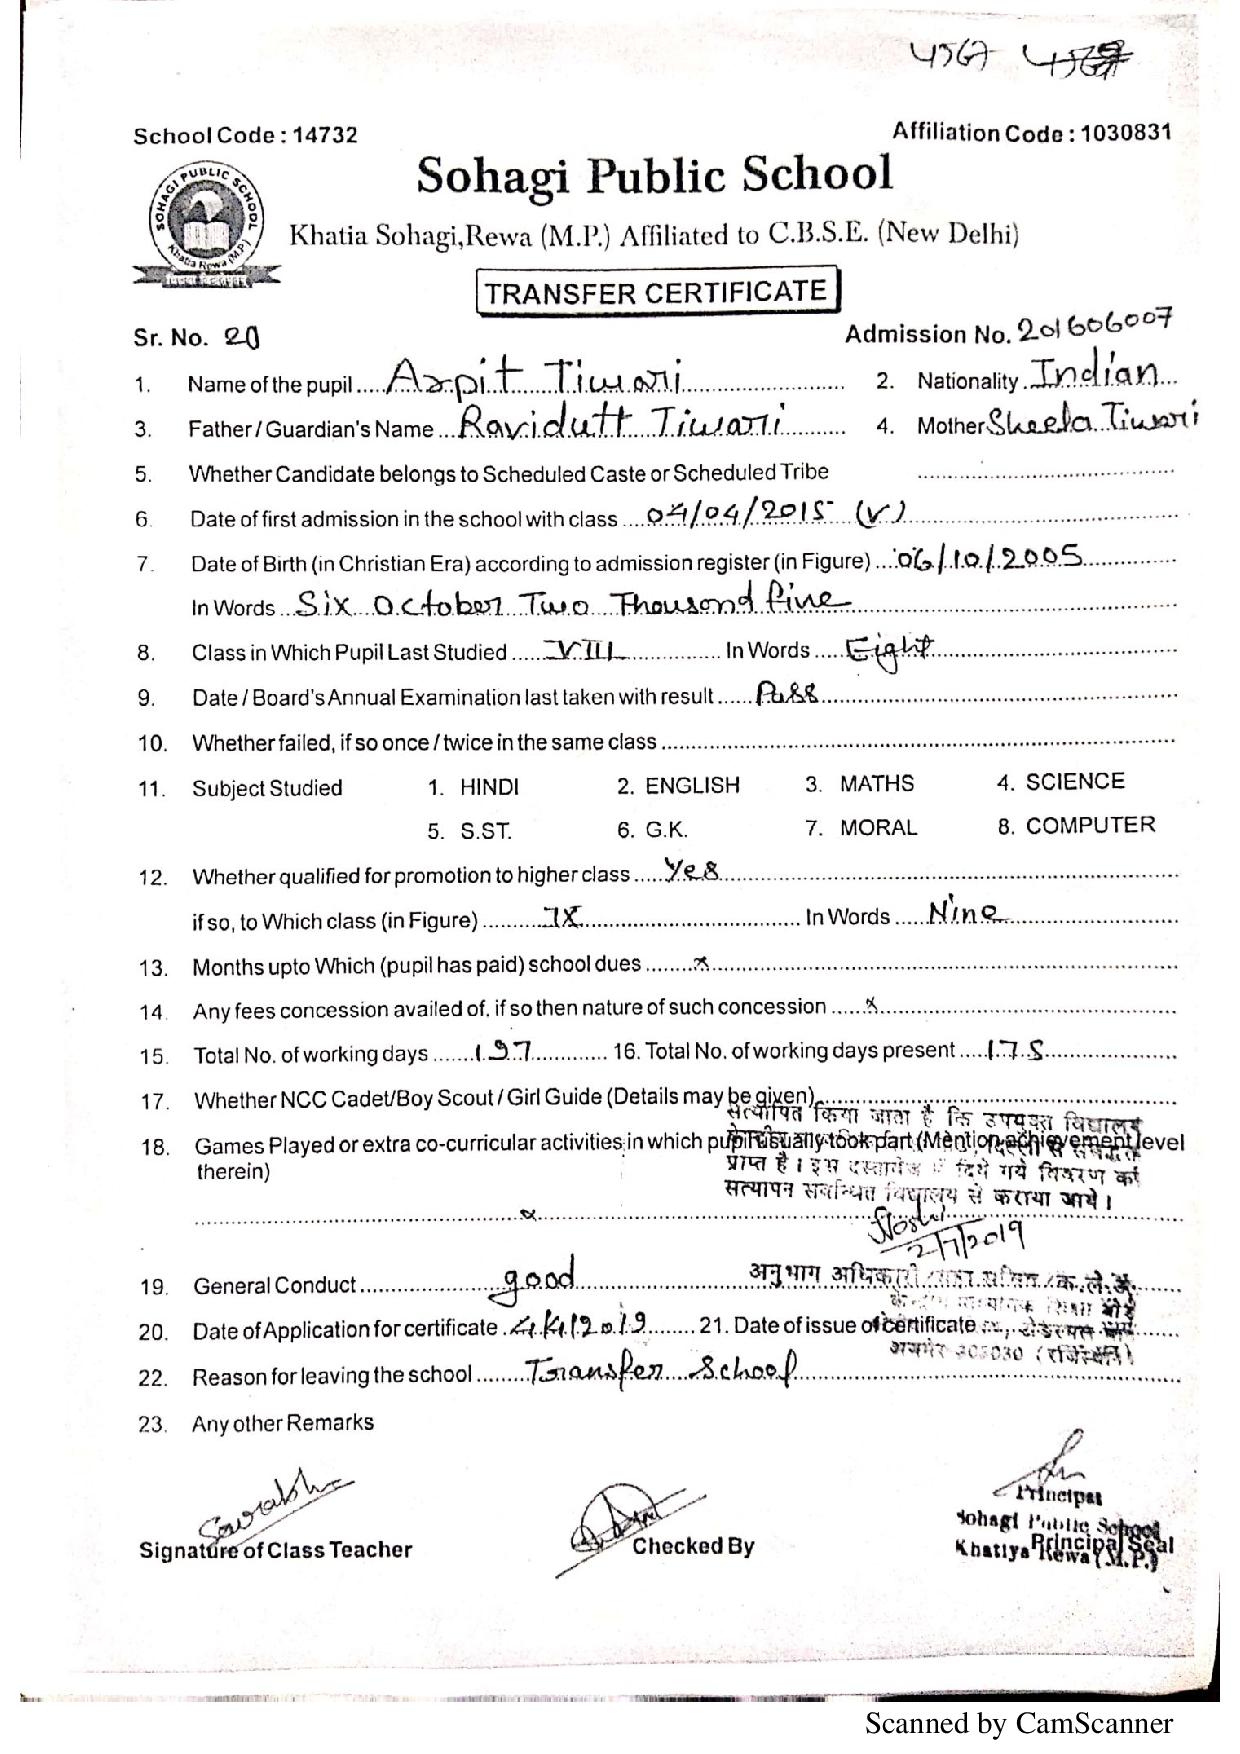 4567
School Code : 14732
Affiliation Code : 1030831
SOHAGI PUBLIC SCHOOL
Khatia Rewa (M.P.)
Sohagi Public School
Khatia Sohagi,Rewa (M.P.) Affiliated to C.B.S.E. (New Delhi)
TRANSFER CERTIFICATE
Sr. No. 20
Admission No. 201606007
1. Name of the pupil ..... Arpit Tiwari ..... 2. Nationality . Indian ...
3. Father / Guardian's Name ... Ravidutt Tiwari ..... 4. Mother Sheela Tiwari
5. Whether Candidate belongs to Scheduled Caste or Scheduled Tribe .....
6. Date of first admission in the school with class .... 04/04/2015 (V) .....
7. Date of Birth (in Christian Era) according to admission register (in Figure) .... 06/10/2005 .....
In Words ... Six October Two Thousand five .....
8. Class in Which Pupil Last Studied ..... VIII ..... In Words ..... Eight .....
9. Date / Board's Annual Examination last taken with result ...... Pass .....
10. Whether failed, if so once / twice in the same class .....
11. Subject Studied 1. HINDI 2. ENGLISH 3. MATHS 4. SCIENCE
5. S.ST. 6. G.K. 7. MORAL 8. COMPUTER
12. Whether qualified for promotion to higher class ..... Yes .....
if so, to Which class (in Figure) ..... IX ..... In Words ..... Nine .....
13. Months upto Which (pupil has paid) school dues ..... x .....
14. Any fees concession availed of, if so then nature of such concession ..... x .....
15. Total No. of working days ....... 197 ..... 16. Total No. of working days present .... 175 .....
17. Whether NCC Cadet/Boy Scout / Girl Guide (Details may be given) .....
सत्यापित किया जाता है कि उपयुक्त विद्यालय
18. Games Played or extra co-curricular activities in which pupil usually took part (Mention achievement level
therein)
प्राप्त है। इस दस्तावेज में दिये गये विवरण का
सत्यापन सबन्धित विद्यालय से कराया जाये।
..... x .....
2/7/2019
19. General Conduct ..... good .....
अनुभाग अधिकारी
20. Date of Application for certificate . 4/4/2019 ........ 21. Date of issue of certificate .....
अजमेर 305030 (राजस्थान)
22. Reason for leaving the school ........ Transfer School .....
23. Any other Remarks
Saurabh
Signature of Class Teacher
Checked By
Principal
Sohagi Public School
Khatiya Rewa (M.P.)
Principal Seal
Scanned by CamScanner